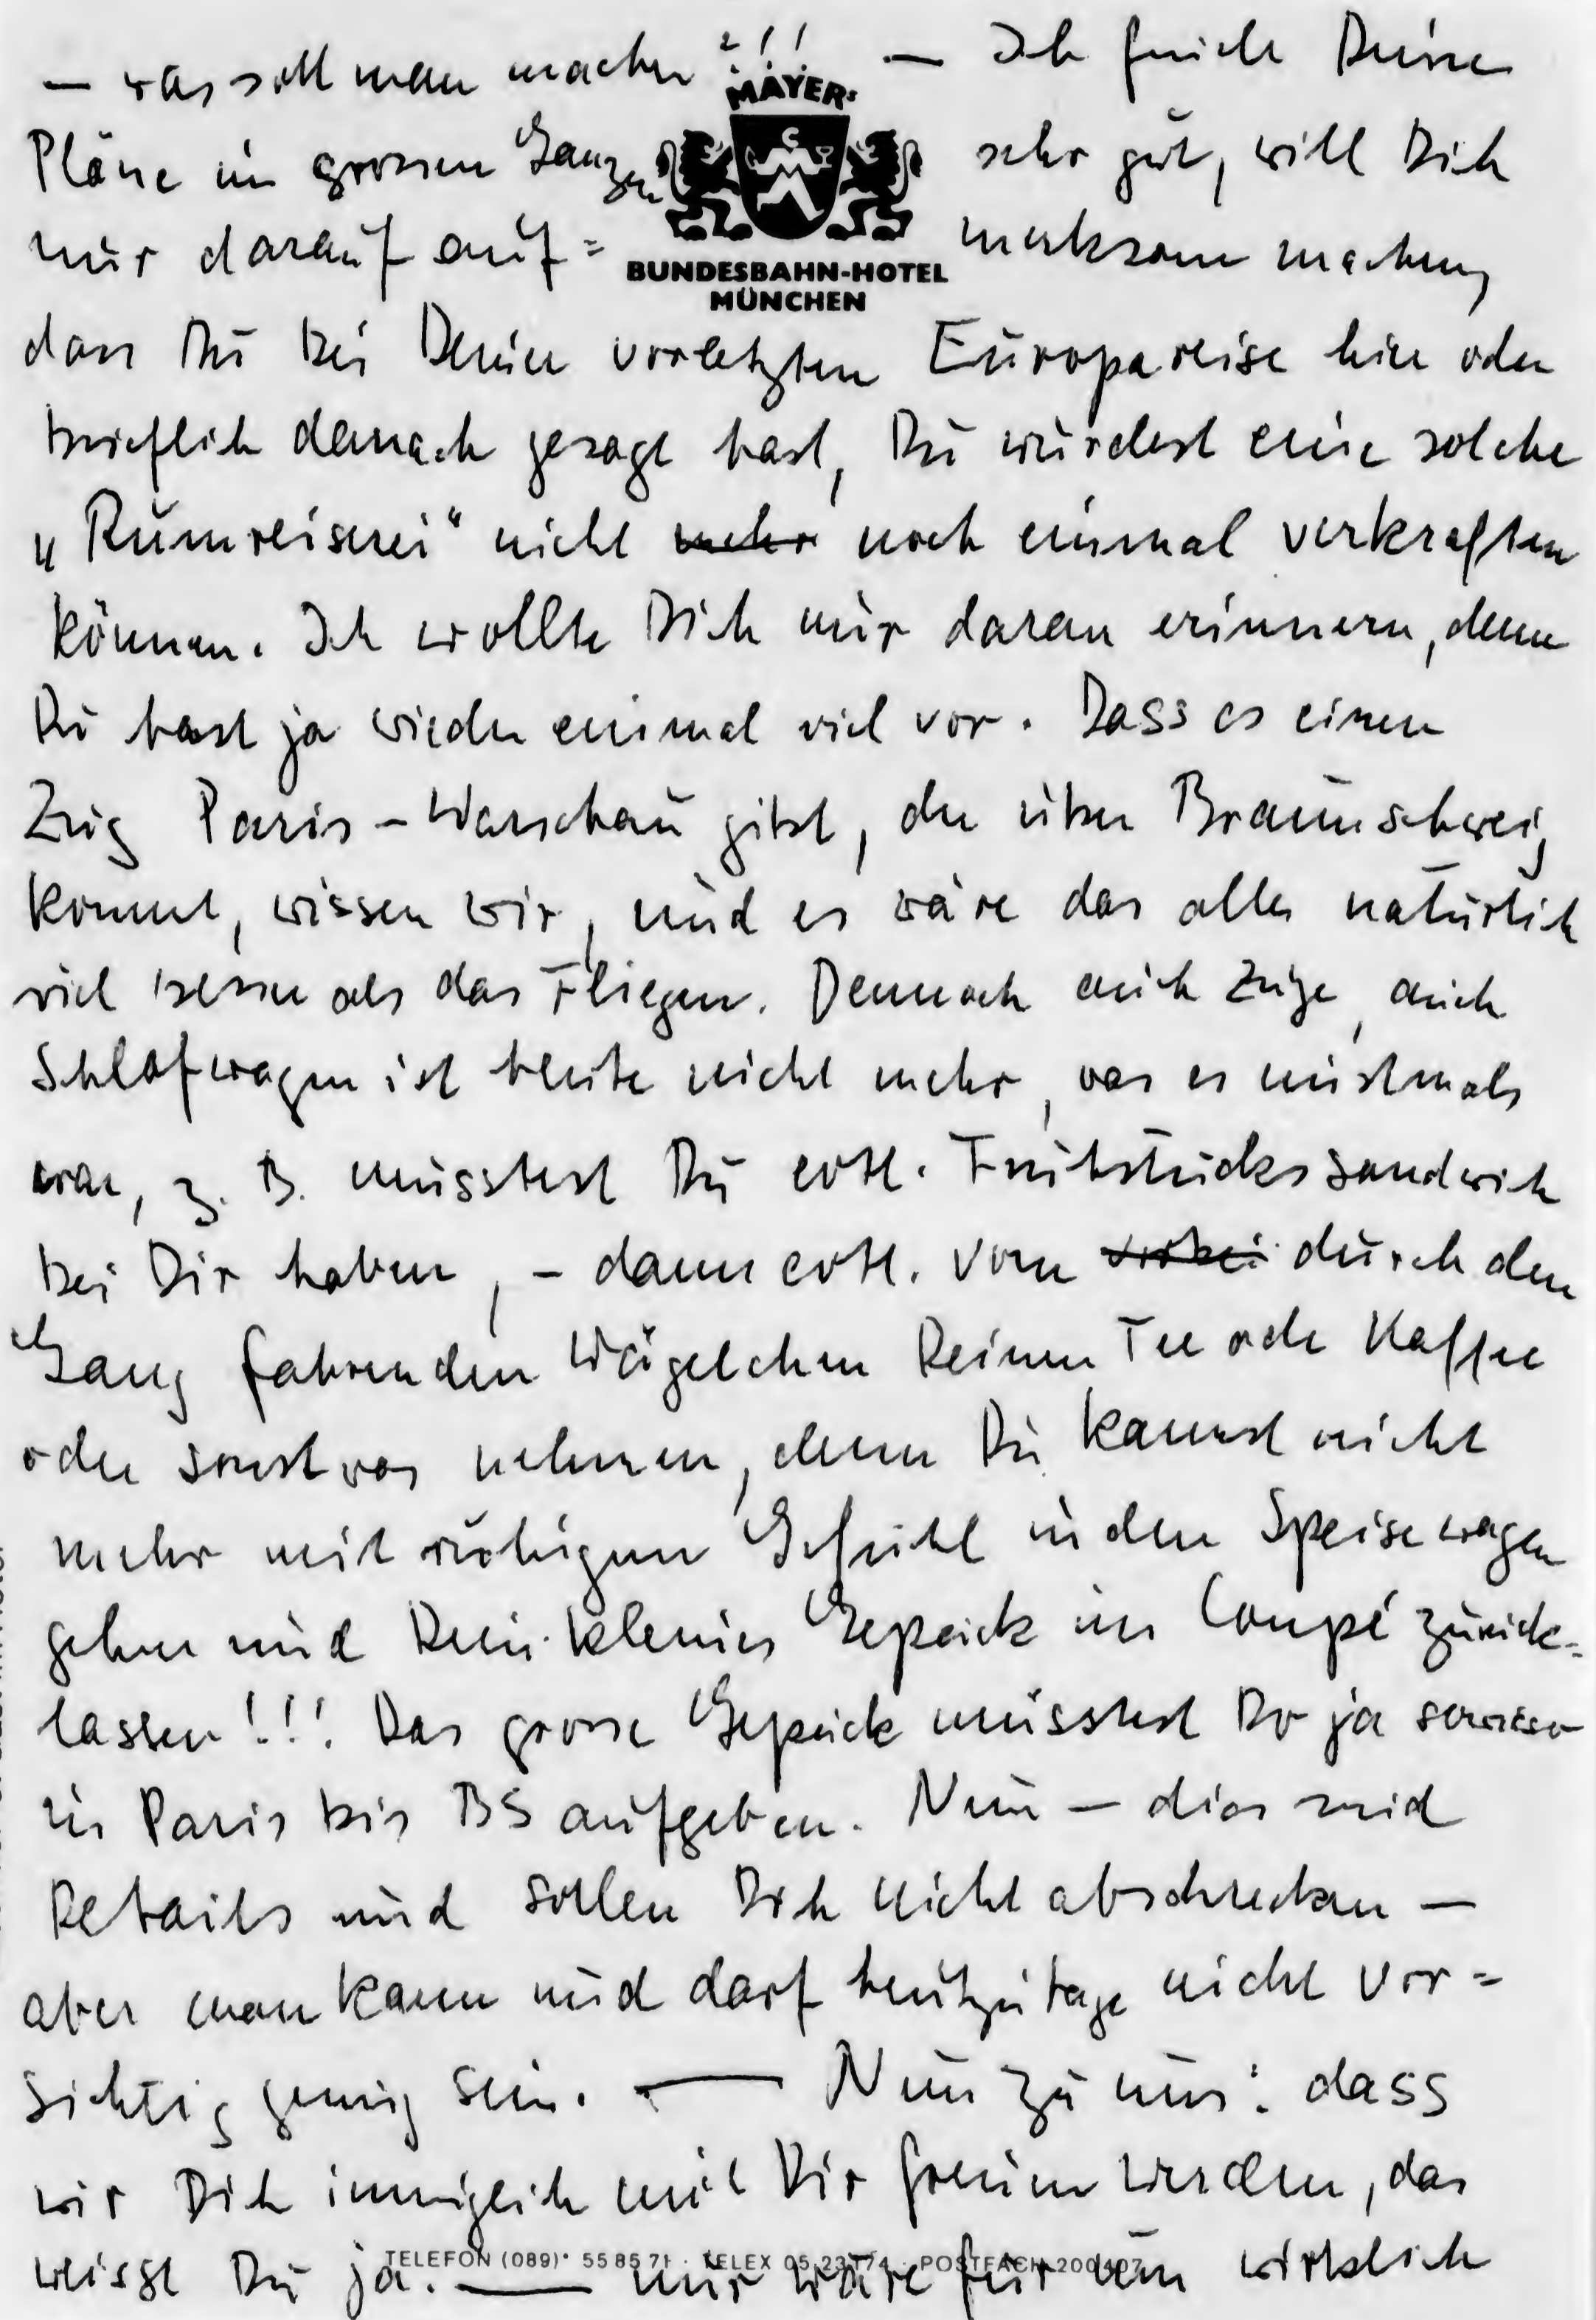 — was soll man machen ?!! — Ich finde Deine
MAYER's
Pläne im grossen Ganzen sehr gut, will Dich
nur darauf auf= merksam machen,
BUNDESBAHN-HOTEL
MÜNCHEN
dass Du bei Deiner vorletzten Europareise hier oder
brieflich danach gesagt hast, Du würdest eine solche
„Rumreiserei“ nicht mehr noch einmal verkraften
können. Ich wollte Dich nur daran erinnern, denn
Du hast ja wieder einmal viel vor. Dass es einen
Zug Paris – Warschau gibt, der über Braunschweig
kommt, wissen wir, und es wäre das alles natürlich
viel besser als das Fliegen. Dennoch auch Züge, auch
Schlafwagen ist heute nicht mehr, was es einstmals
war, z. B. müsstest Du evtl. Frühstückssandwich
bei Dir haben, – dann evtl. vom vorbei durch den
Gang fahrenden Wägelchen Deinen Tee oder Kaffee
oder sonstwas nehmen, denn Du kannst nicht
mehr mit ruhigem Gefühl in den Speisewagen
gehen und Dein kleines Gepäck im Coupé zurück=
lassen!!! Das grosse Gepäck müsstest Du ja sowieso
in Paris bis BS aufgeben. Nun — dies sind
Details und sollen Dich nicht abschrecken —
aber man kann und darf heutzutage nicht vor=
sichtig genug sein. — Nun zu uns: dass
wir Dich inniglich mit Dir freuen werden, das
weisst Du ja. — nur wäre für wirklich
TELEFON (089) 55 85 71 · TELEX 05 23174 · POSTFACH 200407